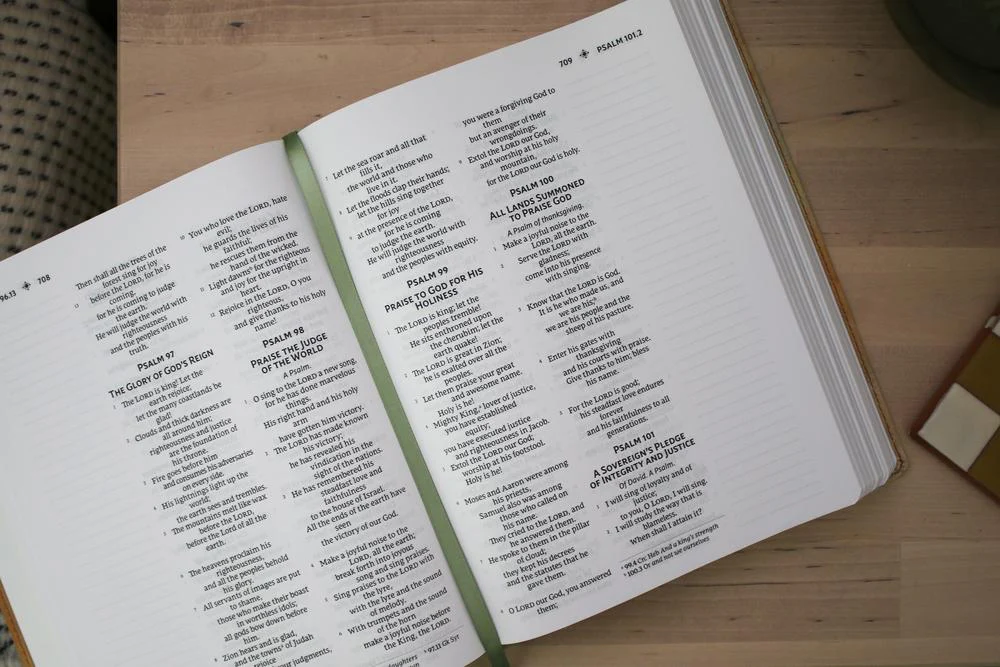 96.13 708
Then shall all the trees of the
forest sing for joy
13 before the LORD, for he is
coming,
for he is coming to judge
the earth.
He will judge the world with
righteousness
and the peoples with his
truth.
PSALM 97
THE GLORY OF GOD'S REIGN
1 The LORD is king! Let the
earth rejoice;
let the many coastlands be
glad!
2 Clouds and thick darkness are
all around him;
righteousness and justice
are the foundation of
his throne.
3 Fire goes before him
and consumes his adversaries
on every side.
4 His lightnings light up the
world;
the earth sees and trembles.
5 The mountains melt like wax
before the LORD,
before the Lord of all the
earth.
6 The heavens proclaim his
righteousness,
and all the peoples behold
his glory.
7 All servants of images are put
to shame,
those who make their boast
in worthless idols;
all gods bow down before
him.
8 Zion hears and is glad,
and the towns of Judah
rejoice
your judgments,
10 You who love the LORD, hate
evil;
he guards the lives of his
faithful;
he rescues them from the
hand of the wicked.
11 Light dawns for the righteous
and joy for the upright in
heart.
12 Rejoice in the LORD, O you
righteous,
and give thanks to his holy
name!
PSALM 98
PRAISE THE JUDGE
OF THE WORLD
A Psalm.
1 O sing to the LORD a new song,
for he has done marvelous
things.
His right hand and his holy
arm
have gotten him victory.
2 The LORD has made known
his victory;
he has revealed his
vindication in the
sight of the nations.
3 He has remembered his
steadfast love and
faithfulness
to the house of Israel.
All the ends of the earth have
seen
the victory of our God.
4 Make a joyful noise to the
LORD, all the earth;
break forth into joyous
song and sing praises.
5 Sing praises to the LORD with
the lyre,
with the lyre and the sound
of melody.
6 With trumpets and the sound
of the horn
make a joyful noise before
the King, the LORD.
daughters 97.11 Gk Syr
709 PSALM 101.2
7 Let the sea roar and all that
fills it,
the world and those who
live in it.
8 Let the floods clap their hands;
let the hills sing together
for joy
9 at the presence of the LORD,
for he is coming
to judge the earth.
He will judge the world with
righteousness
and the peoples with equity.
PSALM 99
PRAISE TO GOD FOR HIS
HOLINESS
1 The LORD is king; let the
peoples tremble!
He sits enthroned upon
the cherubim; let the
earth quake!
2 The LORD is great in Zion;
he is exalted over all the
peoples.
3 Let them praise your great
and awesome name.
Holy is he!
4 Mighty King, lover of justice,
you have established
equity;
you have executed justice
and righteousness in Jacob.
5 Extol the LORD our God;
worship at his footstool.
Holy is he!
6 Moses and Aaron were among
his priests,
Samuel also was among
those who called on
his name.
They cried to the LORD, and
he answered them.
7 He spoke to them in the pillar
of cloud;
they kept his decrees
and the statutes that he
gave them.
8 O LORD our God, you answered
them;
you were a forgiving God to
them
but an avenger of their
wrongdoings.
9 Extol the LORD our God,
and worship at his holy
mountain,
for the LORD our God is holy.
PSALM 100
ALL LANDS SUMMONED
TO PRAISE GOD
A Psalm of thanksgiving.
1 Make a joyful noise to the
LORD, all the earth.
2 Serve the LORD with
gladness;
come into his presence
with singing.
3 Know that the LORD is God.
It is he who made us, and
we are his;
we are his people and the
sheep of his pasture.
4 Enter his gates with
thanksgiving
and his courts with praise.
Give thanks to him; bless
his name.
5 For the LORD is good;
his steadfast love endures
forever
and his faithfulness to all
generations.
PSALM 101
A SOVEREIGN'S PLEDGE
OF INTEGRITY AND JUSTICE
Of David. A Psalm.
1 I will sing of loyalty and of
justice;
to you, O LORD, I will sing.
2 I will study the way that is
blameless.
When shall I attain it?
99.4 Cn: Heb And a king's strength
100.3 Or and not we ourselves